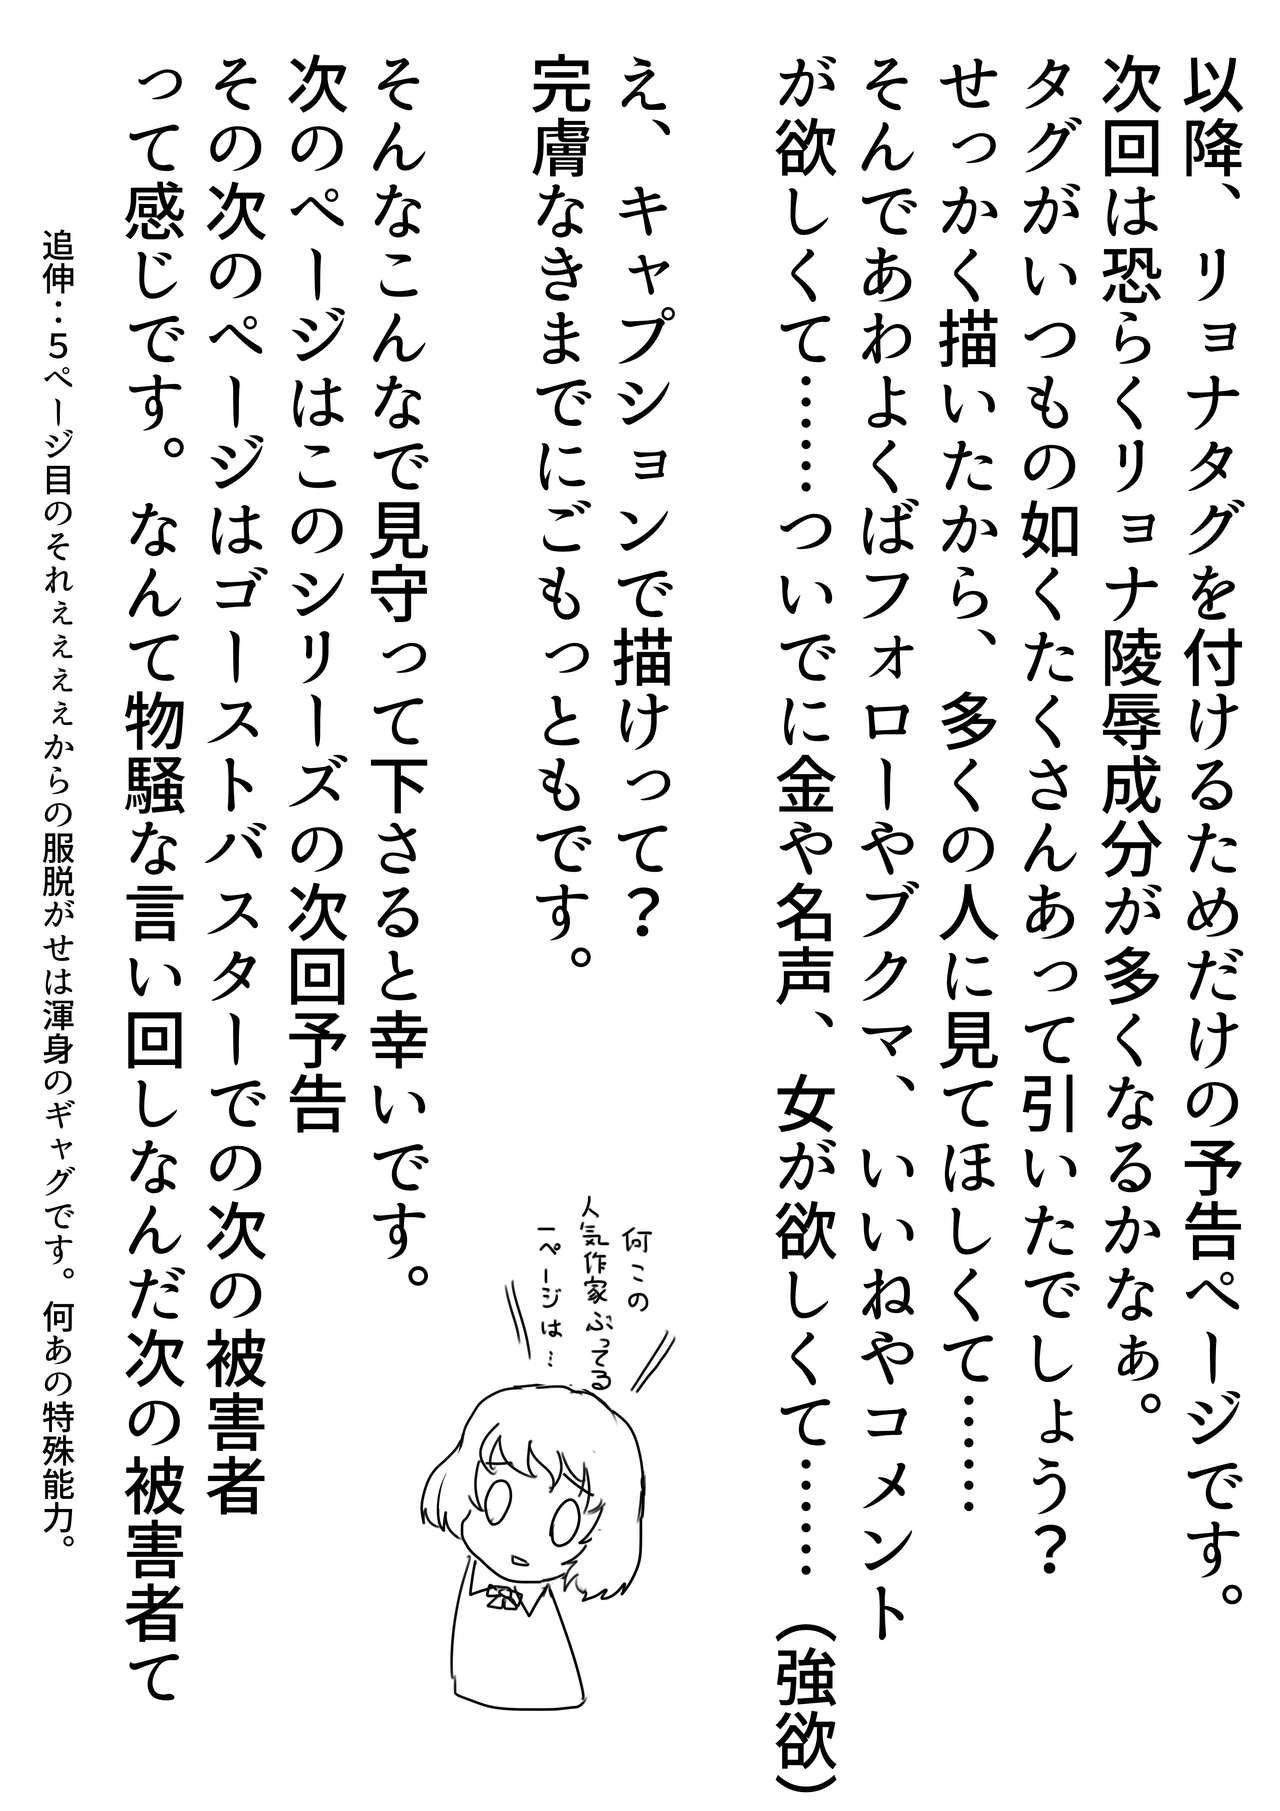 以降、リョナタグを付けるためだけの予告ページです。
次回は恐らくリョナ陵辱成分が多くなるかなぁ。
タグがいつもの如くたくさんあって引いたでしょう？
せっかく描いたから、多くの人に見てほしくて……
そんであわよくばフォローやブクマ、いいねやコメント
が欲しくて……ついでに金や名声、女が欲しくて……（強欲）
え、キャプションで描けって？
完膚なきまでにごもっともです。
そんなこんなで見守って下さると幸いです。
次のページはこのシリーズの次回予告
その次のページはゴーストバスターでの次の被害者
って感じです。なんて物騒な言い回しなんだ次の被害者て
追伸：５ページ目のそれぇぇぇぇからの服脱がせは渾身のギャグです。何あの特殊能力。
何この
人気作家ぶってる
一ページは…